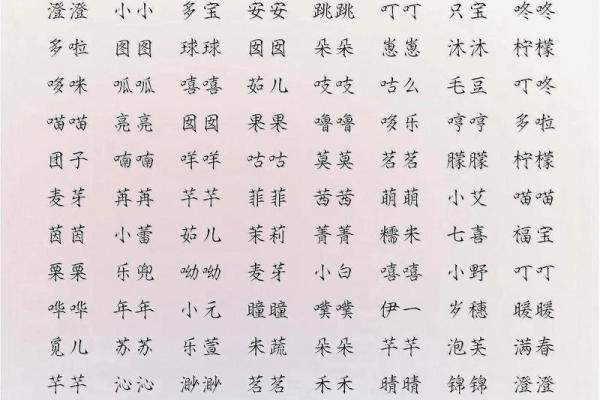 澄澄 小小 多宝 安安 跳跳 叮叮 只宝 咚咚
多啦 图图 球球 囡囡 朵朵 崽崽 沐沐 柠檬
哆咪 呱呱 嘻嘻 茹儿 吱吱 咕么 毛豆 叮咚
喵喵 亮亮 囡囡 果果 噜噜 哆乐 哼哼 多啦
团子 喃喃 咩咩 咕咕 莫莫 茗茗 朦朦 柠檬
麦芽 苒苒 芊芊 菲菲 茜茜 萌萌 小艾 喵喵
茵茵 小蕾 茹儿 茉莉 菁菁 糯米 七喜 福宝
栗栗 乐兜 呦呦 麦芽 小白 嘻嘻 小野 叮叮
哗哗 年年 小元 瞳瞳 噗噗 伊一 岁穗 暖暖
觅儿 苏苏 乐萱 朱蔬 朵朵 芊芊 泡芙 满春
芊芊 沁沁 渺渺 茗茗 禾禾 晴晴 锦锦 澄澄